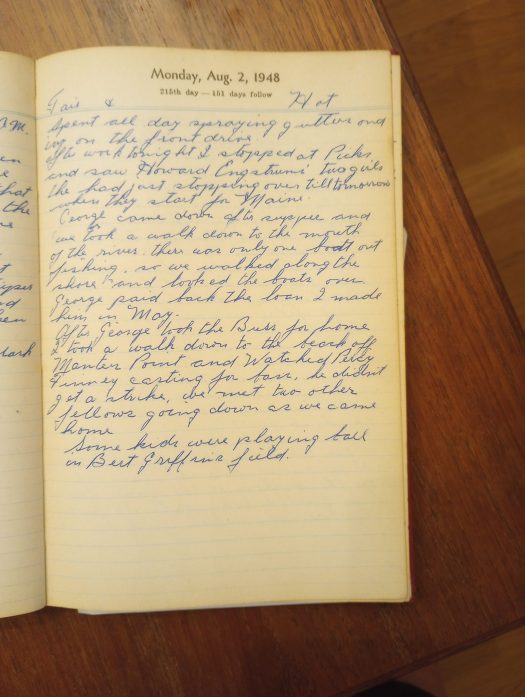 Monday, Aug. 2, 1948
215th day — 151 days follow
Fair & Hot
Spent all day spraying gutters and
ing on the front drive.
after work tonight I stopped at Picks
and saw Howard Engstrums two girls
the had just stopping over till tomorrow
where they start for Maine.
George came down after supper and
we took a walk down to the mouth
of the river. there was only one boat out
fishing. so we walked along the
shore and looked the boats over
George paid back the loan I made
him in May.
After George took the Buss for home
I took a walk down to the beach off
Manter Point and Watched Percy
Finney casting for bass, he didnt
get a strike, we met two other
fellows going down as we came
home
Some kids were playing ball
in Bert Griffins field.
A.M.
en
that
the
me
t
nd
een
lark